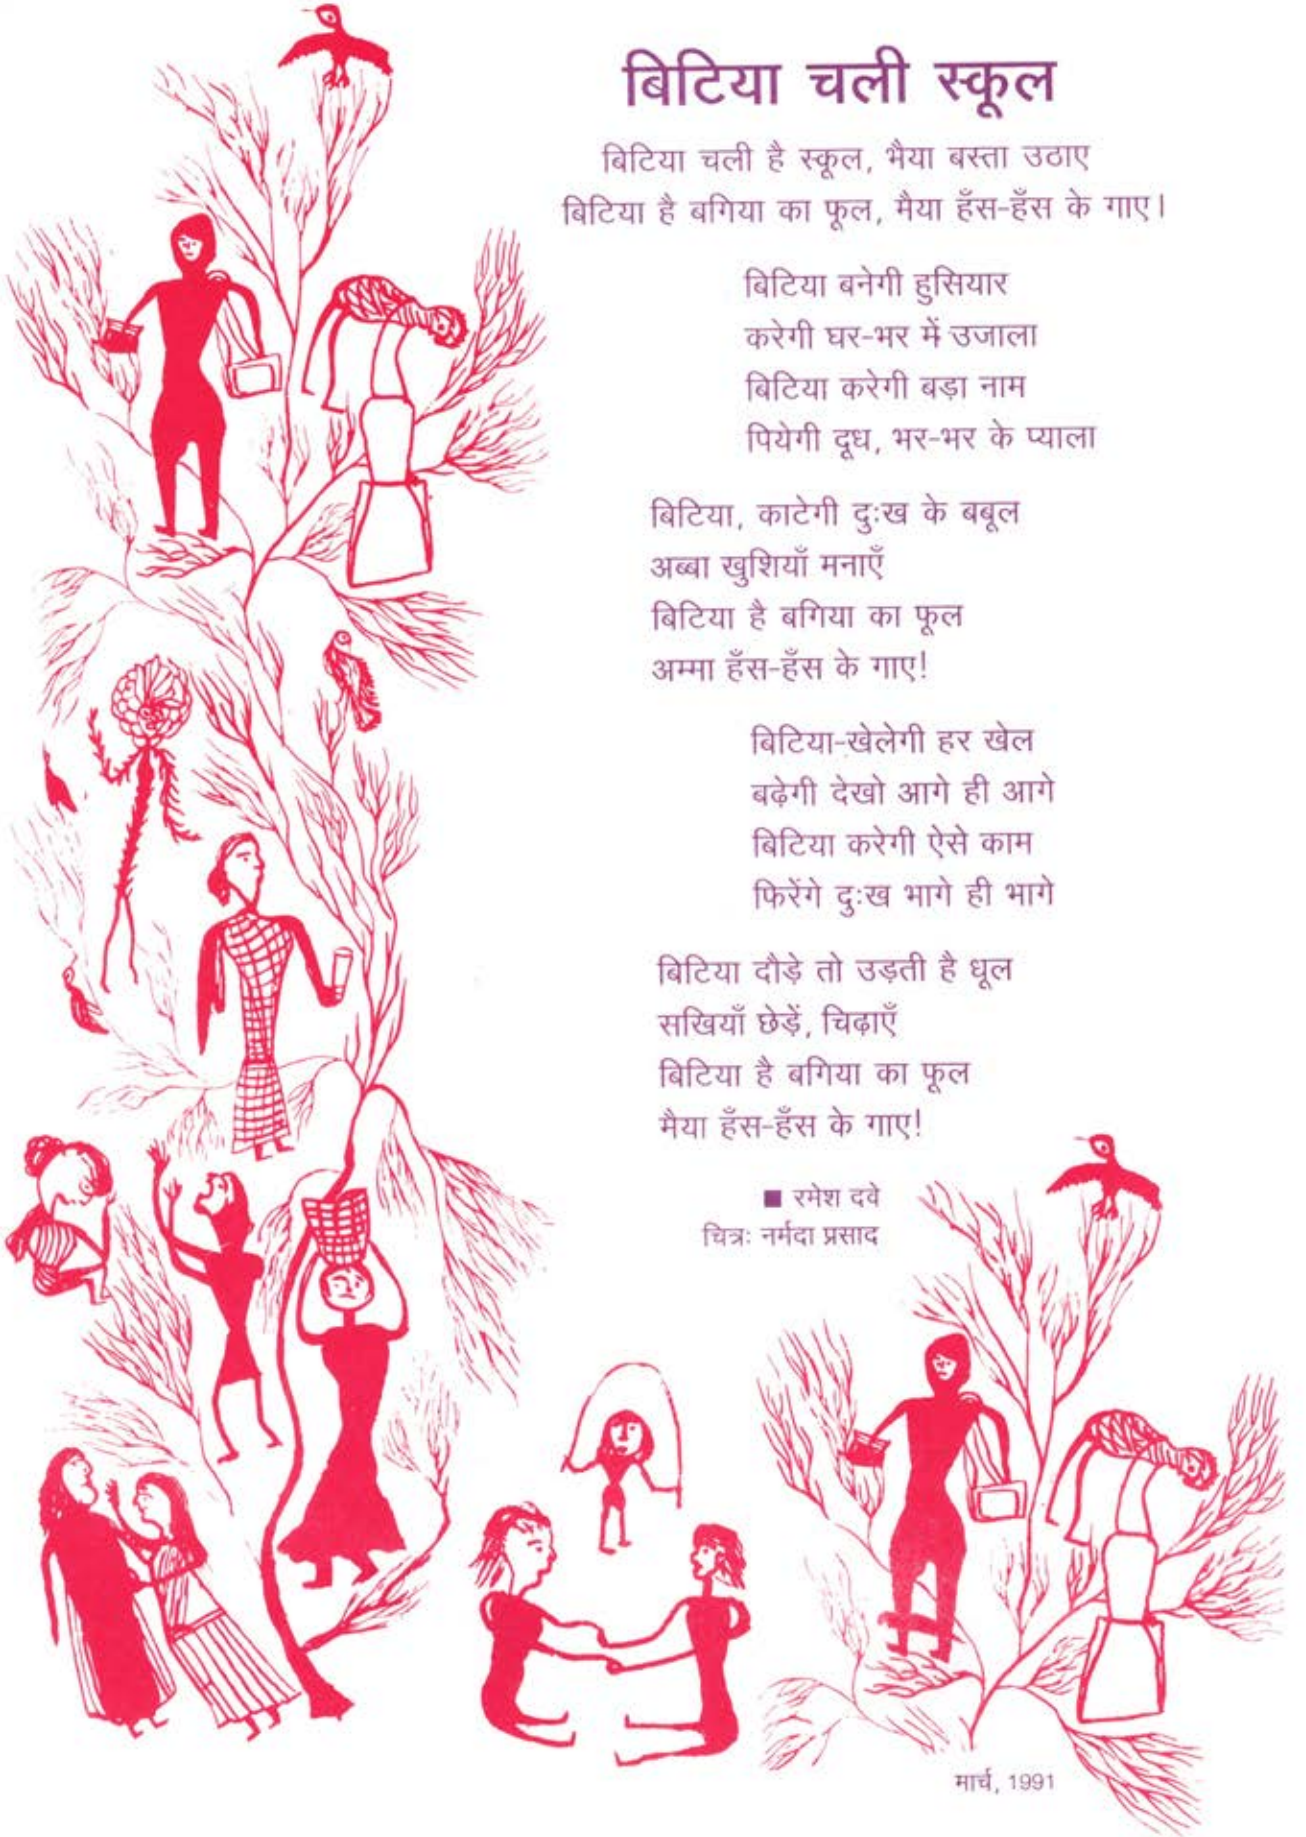 बिटिया चली स्कूल
बिटिया चली है स्कूल, भैया बस्ता उठाए
बिटिया है बगिया का फूल, मैया हँस-हँस के गाए।
बिटिया बनेगी हुसियार
करेगी घर-भर में उजाला
बिटिया करेगी बड़ा नाम
पियेगी दूध, भर-भर के प्याला
बिटिया, काटेगी दुःख के बबूल
अब्बा खुशियाँ मनाएँ
बिटिया है बगिया का फूल
अम्मा हँस-हँस के गाए!
बिटिया-खेलेगी हर खेल
बढ़ेगी देखो आगे ही आगे
बिटिया करेगी ऐसे काम
फिरेंगे दुःख भागे ही भागे
बिटिया दौड़े तो उड़ती है धूल
सखियाँ छेड़ें, चिढ़ाएँ
बिटिया है बगिया का फूल
मैया हँस-हँस के गाए!
■ रमेश दवे
चित्रः नर्मदा प्रसाद
मार्च, 1991